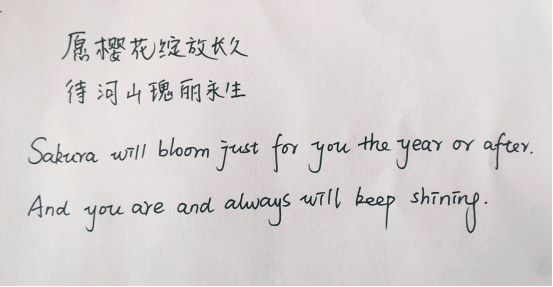 愿樱花绽放长久
待河山瑰丽永生
Sakura will bloom just for you the year or after.
And you are and always will keep shining.